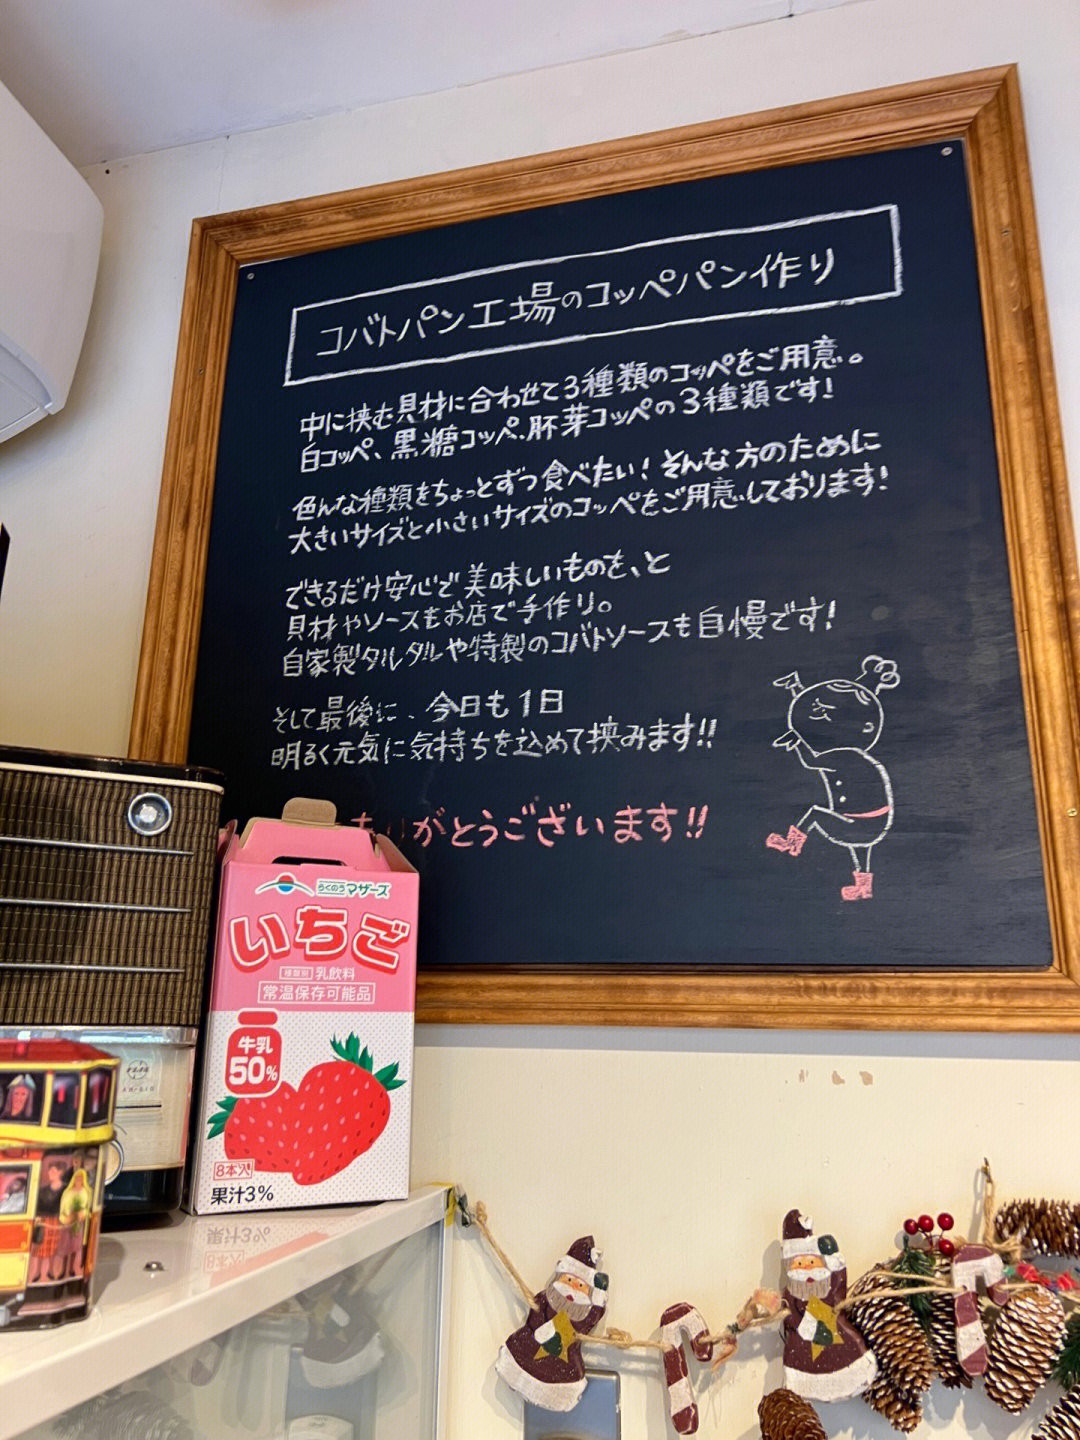 コバトパン工場のコッペパン作り
中に挟む具材に合わせて3種類のコッペをご用意。
白コッペ、黒糖コッペ、胚芽コッペの3種類です!
色んな種類をちょっとずつ食べたい!そんな方のために
大きいサイズと小さいサイズのコッペをご用意しております!
できるだけ安心で美味しいものを、と
具材やソースもお店で手作り。
自家製タルタルや特製のコバトソースも自慢です!
そして最後に、今日も1日
明るく元気に気持ちを込めて挟みます!!
ありがとうございます!!
らくのうマザーズ
いちご
種類別 乳飲料
常温保存可能品
牛乳
50%
8本入
果汁3%